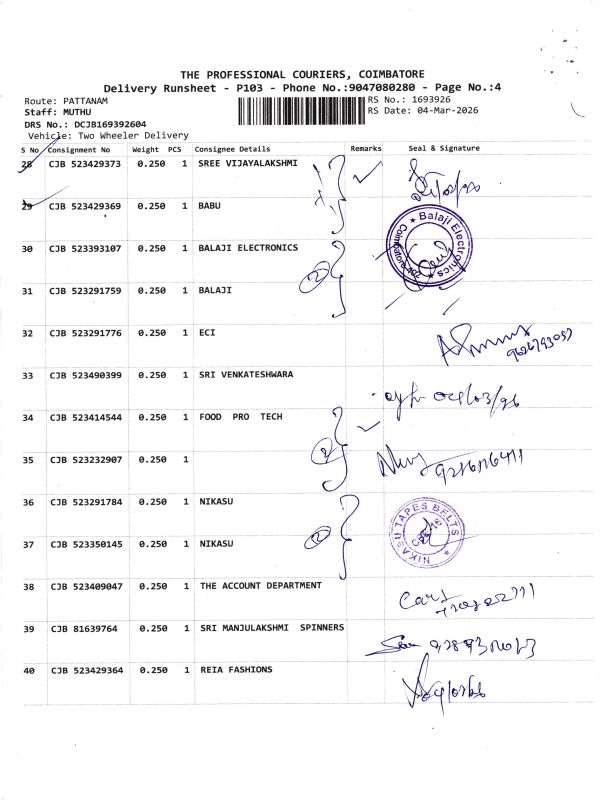 THE PROFESSIONAL COURIERS, COIMBATORE
Delivery Runsheet - P103 - Phone No.:9047080280 - Page No.:4
Route: PATTANAM
RS No.: 1693926
Staff: MUTHU
RS Date: 04-Mar-2026
DRS No.: DCJB169392604
Vehicle: Two Wheeler Delivery
S No Consignment No Weight PCS Consignee Details Remarks Seal & Signature
28 CJB 523429373 0.250 1 SREE VIJAYALAKSHMI
29 CJB 523429369 0.250 1 BABU
30 CJB 523393107 0.250 1 BALAJI ELECTRONICS
2
Balaji Electronics
31 CJB 523291759 0.250 1 BALAJI
32 CJB 523291776 0.250 1 ECI
33 CJB 523490399 0.250 1 SRI VENKATESHWARA
34 CJB 523414544 0.250 1 FOOD PRO TECH
2
35 CJB 523232907 0.250 1
36 CJB 523291784 0.250 1 NIKASU
2
NIKASU TAPES BELTS
37 CJB 523350145 0.250 1 NIKASU
38 CJB 523409047 0.250 1 THE ACCOUNT DEPARTMENT
39 CJB 81639764 0.250 1 SRI MANJULAKSHMI SPINNERS
40 CJB 523429364 0.250 1 REIA FASHIONS